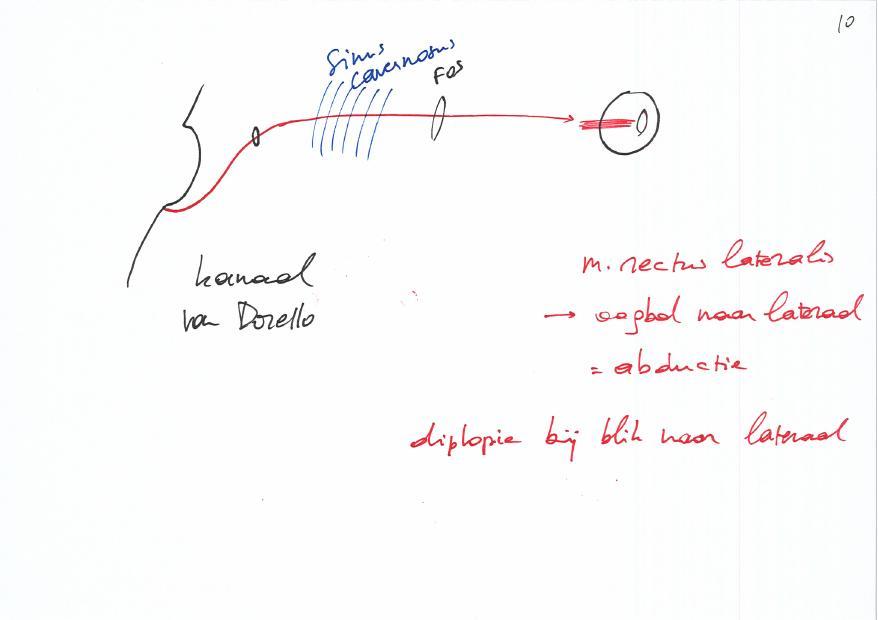 10
Sinus
cavernosus
FOS
kanaal
van Dorello
m. rectus lateralis
→ oogbol naar lateraal
= abductie
diplopie bij blik naar lateraal